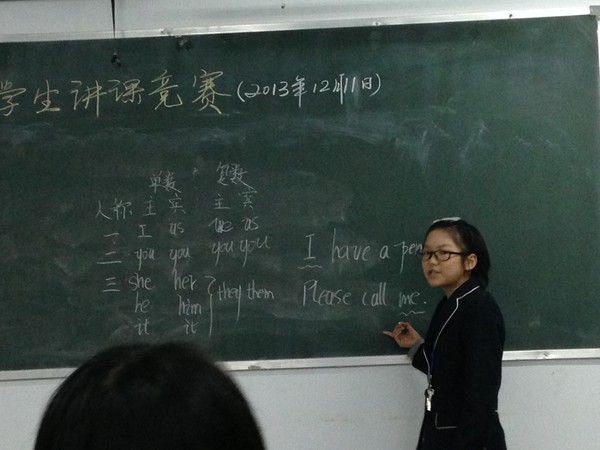 学生讲课竞赛(2013年12月11日)
单数 复数
人称 主 宾 主 宾
一 I us we us
二 you you you you
三 she her } they them
he him
it it
I have a pen
Please call me.